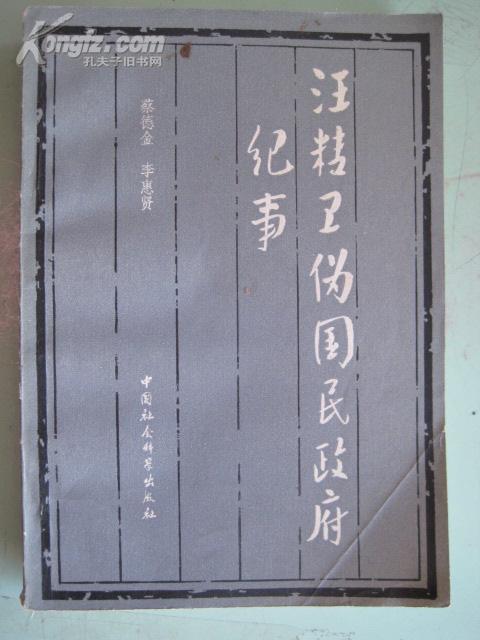 Kongfz.com
孔夫子旧书网
汪精卫伪国民政府
纪事
蔡德金 李惠贤
中国社会科学出版社